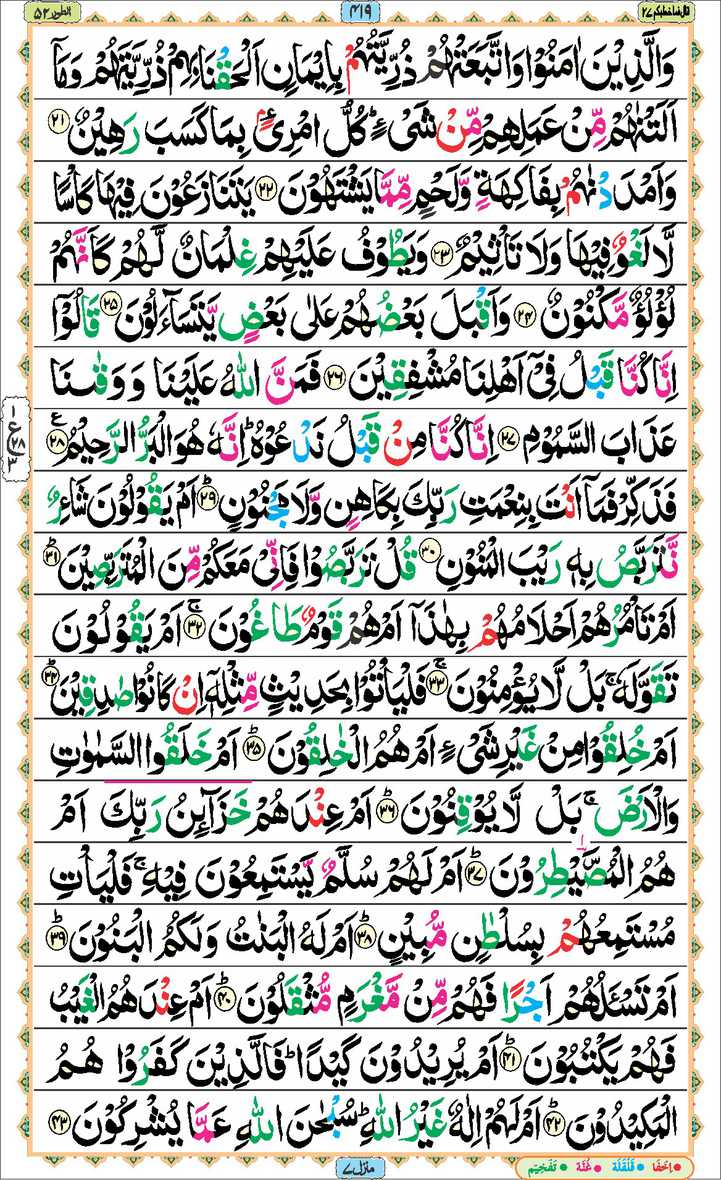 قال فما خطبكم ۲۷
۴۱۹
الطور ۵۲
وَالَّذِيْنَ اٰمَنُوْا وَاتَّبَعَتْهُمْ ذُرِّيَّتُهُمْ بِاِيْمَانٍ اَلْحَقْنَا بِهِمْ ذُرِّيَّتَهُمْ وَمَاۤ
اَلَتْنٰهُمْ مِّنْ عَمَلِهِمْ مِّنْ شَیْءٍ ؕ كُلُّ امْرِیٍۭٔ بِمَا كَسَبَ رَهِيْنٌ ۲۱
وَاَمْدَدْنٰهُمْ بِفَاكِهَةٍ وَّلَحْمٍ مِّمَّا يَشْتَهُوْنَ ۲۲ يَتَنَازَعُوْنَ فِيْهَا كَاْسًا
لَّا لَغْوٌ فِيْهَا وَلَا تَاْثِيْمٌ ۲۳ وَيَطُوْفُ عَلَيْهِمْ غِلْمَانٌ لَّهُمْ كَاَنَّهُمْ
لُؤْلُؤٌ مَّكْنُوْنٌ ۲۴ وَاَقْبَلَ بَعْضُهُمْ عَلٰى بَعْضٍ يَّتَسَآءَلُوْنَ ۲۵ قَالُوْۤا
اِنَّا كُنَّا قَبْلُ فِیْۤ اَهْلِنَا مُشْفِقِيْنَ ۲۶ فَمَنَّ اللّٰهُ عَلَيْنَا وَوَقٰىنَا
عَذَابَ السَّمُوْمِ ۲۷ اِنَّا كُنَّا مِنْ قَبْلُ نَدْعُوْهُ ؕ اِنَّهٗ هُوَ الْبَرُّ الرَّحِيْمُ ۲۸ ع
فَذَكِّرْ فَمَاۤ اَنْتَ بِنِعْمَتِ رَبِّكَ بِكَاهِنٍ وَّلَا مَجْنُوْنٍ ؕ ۲۹ اَمْ يَقُوْلُوْنَ شَاعِرٌ
نَّتَرَبَّصُ بِهٖ رَيْبَ الْمَنُوْنِ ۳۰ قُلْ تَرَبَّصُوْا فَاِنِّیْ مَعَكُمْ مِّنَ الْمُتَرَبِّصِيْنَ ؕ ۳۱
اَمْ تَاْمُرُهُمْ اَحْلَامُهُمْ بِهٰذَاۤ اَمْ هُمْ قَوْمٌ طَاغُوْنَ ۚ ۳۲ اَمْ يَقُوْلُوْنَ
تَقَوَّلَهٗ ۚ بَلْ لَّا يُؤْمِنُوْنَ ۚ ۳۳ فَلْيَاْتُوْا بِحَدِيْثٍ مِّثْلِهٖۤ اِنْ كَانُوْا صٰدِقِيْنَ ؕ ۳۴
اَمْ خُلِقُوْا مِنْ غَيْرِ شَیْءٍ اَمْ هُمُ الْخٰلِقُوْنَ ؕ ۳۵ اَمْ خَلَقُوا السَّمٰوٰتِ
وَالْاَرْضَ ۚ بَلْ لَّا يُوْقِنُوْنَ ؕ ۳۶ اَمْ عِنْدَهُمْ خَزَآئِنُ رَبِّكَ اَمْ
هُمُ الْمُصَۜيْطِرُوْنَ ؕ ۳۷ اَمْ لَهُمْ سُلَّمٌ يَّسْتَمِعُوْنَ فِيْهِ ۚ فَلْيَاْتِ
مُسْتَمِعُهُمْ بِسُلْطٰنٍ مُّبِيْنٍ ؕ ۳۸ اَمْ لَهُ الْبَنٰتُ وَلَكُمُ الْبَنُوْنَ ؕ ۳۹
اَمْ تَسْـَٔلُهُمْ اَجْرًا فَهُمْ مِّنْ مَّغْرَمٍ مُّثْقَلُوْنَ ؕ ۴۰ اَمْ عِنْدَهُمُ الْغَيْبُ
فَهُمْ يَكْتُبُوْنَ ؕ ۴۱ اَمْ يُرِيْدُوْنَ كَيْدًا ؕ فَالَّذِيْنَ كَفَرُوْا هُمُ
الْمَكِيْدُوْنَ ؕ ۴۲ اَمْ لَهُمْ اِلٰهٌ غَيْرُ اللّٰهِ ؕ سُبْحٰنَ اللّٰهِ عَمَّا يُشْرِكُوْنَ ۴۳
۱
ع ۲۸
۳
منزل ۷
• اِخفَا • قَلْقَلَة • غُنَّة • تَفْخِيْم